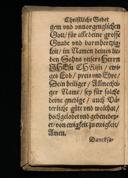 Christliche Gebet
gem und unvergenglichen
Gott / für alle deine grosse
Gnade und barmhertzig
keit / im Namen deines lie
ben Sohns unsers Herrn
JESu CHristi / ewi-
ges Lob / preis und Ehre /
Dein heiliger / Allmechti
ger Name / sey für solche
deine gnedige / und Vä-
terliche güte und wolthat /
hochgelobet und gebenedey-
et / von ewigkeit zu ewigkeit /
Amen.
Dancksa-